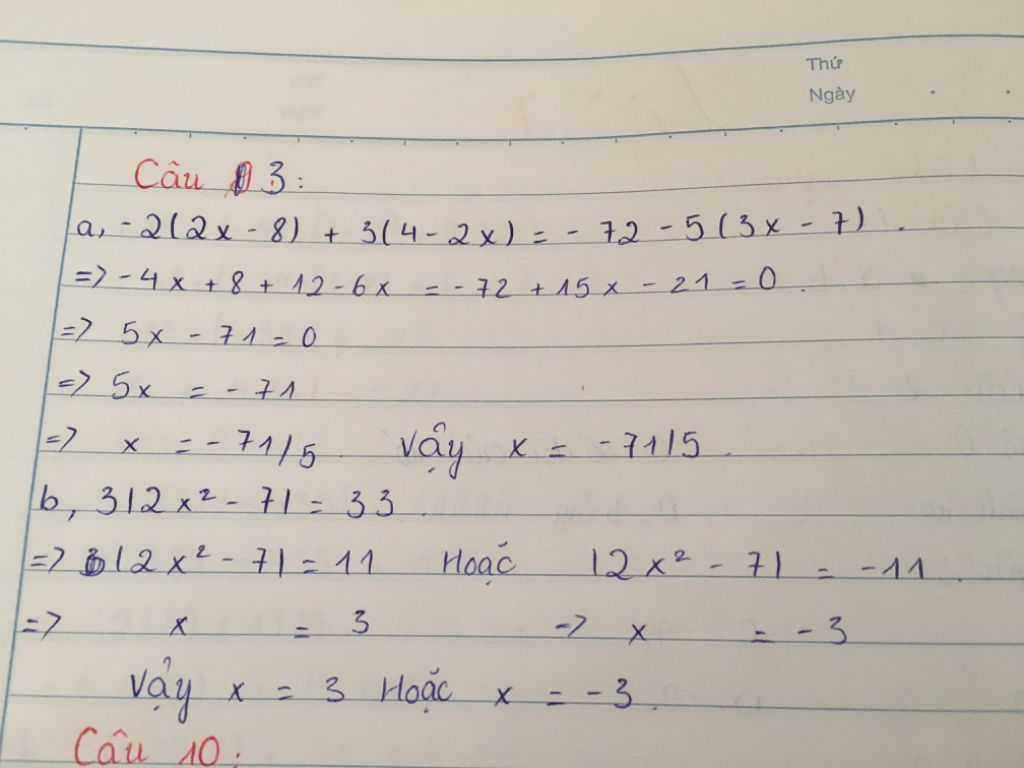 Thứ
Ngày
Câu 3:
a, -2(2x - 8) + 3(4 - 2x) = - 72 - 5(3x - 7).
=> -4x + 8 + 12 - 6x = -72 + 15x - 21 = 0.
=> 5x - 71 = 0
=> 5x = - 71
=> x = - 71/5. Vậy x = -71/5.
b, 3|2x² - 7| = 33.
=> |2x² - 7| = 11 Hoặc |2x² - 7| = -11.
=> x = 3 => x = - 3
Vậy x = 3 Hoặc x = - 3.
Câu 10: